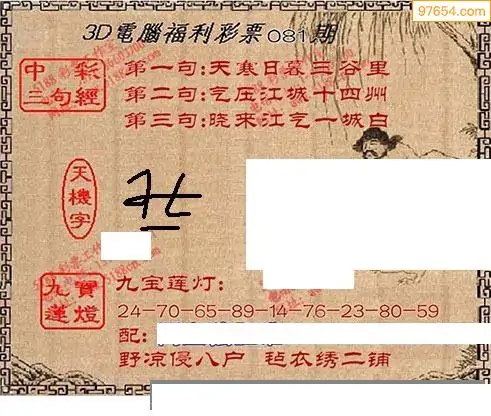 97654.com
3D電腦福利彩票081期
中彩
三句經
第一句:天寒日暮三谷里
第二句:气压江城十四州
第三句:晓来江气一城白
天機字
九寶
蓮燈
九宝莲灯:
24-70-65-89-14-76-23-80-59
配:
野凉侵八户 毡衣绣二铺